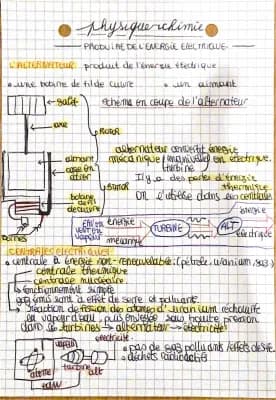 physique chimie
- PRODUIRE DE L'ENERGIE ELECTRIQUE -
L'ALTERNATEUR: produit de l'énergie électrique
• une bobine de fil de cuivre • un aimant
galet
schéma en coupe de l'alternateur
axe
ROTOR
alternateur convertit énergie
mécanique en électrique.
turbine
aimant
STATOR
Il y a des pertes d'énergie
thermique
bobine
de fil
de cuivre
On l'utilise dans les centrales
bornes
énergie
mécanique
TURBINE
ALT
énergie
électrique
CENTRALES ELECTRIQUES:
• centrale à énergie non-renouvelable: (pétrole, uranium, gaz)
centrale thermique
centrale nucléaire
fonctionnement simple
gaz émis sont à effet de serre et polluants.
réaction de fission des atomes d'uranium réchauffe
en vapeur d'eau, puis envoyée sous haute pression
dans les turbines → alternateur → électricité
électricité
vapeur
• pas de gaz polluants / effet de serre.
• déchets radioactifs
atome
turbine
alt
eau